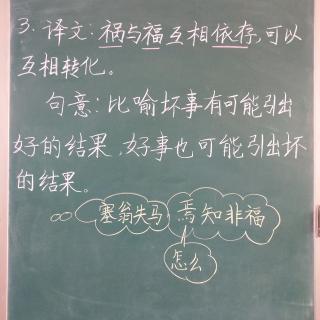 3. 译文:祸与福互相依存,可以
互相转化。
句意:比喻坏事有可能引出
好的结果,好事也可能引出坏
的结果。
塞翁失马 焉知非福
怎么